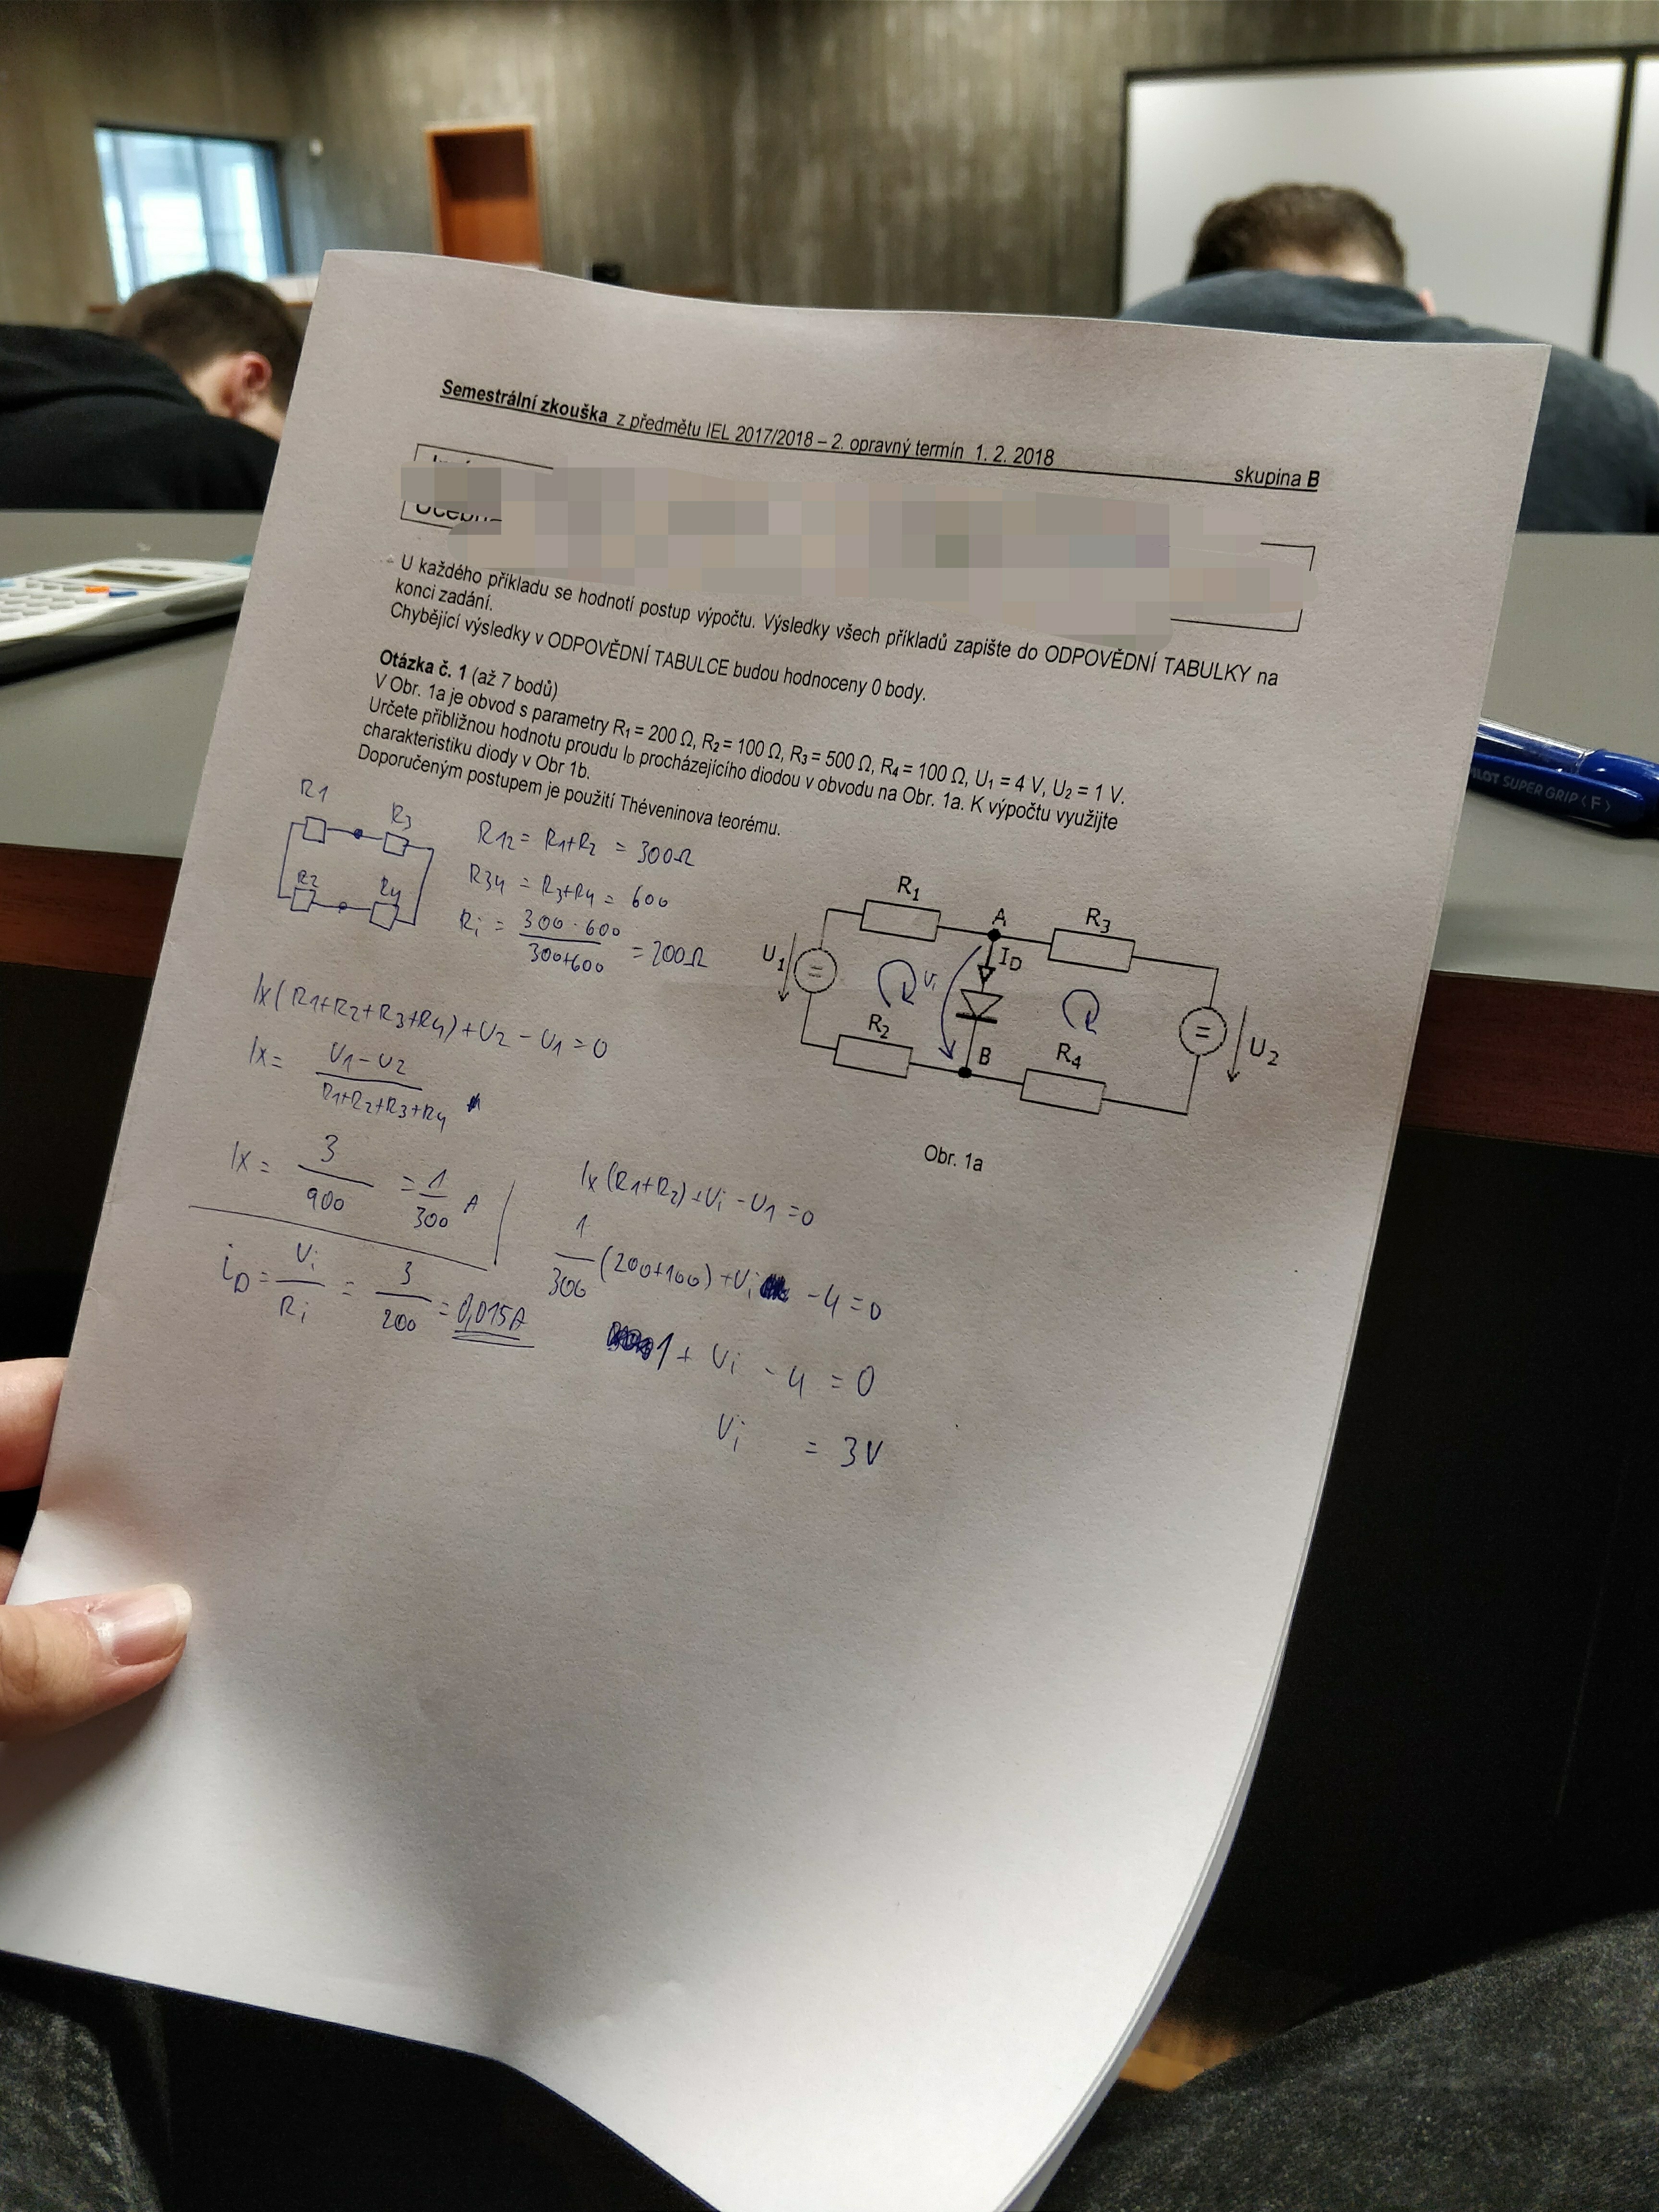 Semestrální zkouška z předmětu IEL 2017/2018 – 2. opravný termín 1. 2. 2018
skupina B
U každého příkladu se hodnotí postup výpočtu. Výsledky všech příkladů zapište do ODPOVĚDNÍ TABULKY na
konci zadání.
Chybějící výsledky v ODPOVĚDNÍ TABULCE budou hodnoceny 0 body.
Otázka č. 1 (až 7 bodů)
V Obr. 1a je obvod s parametry R₁ = 200 Ω, R₂ = 100 Ω, R₃ = 500 Ω, R₄ = 100 Ω, U₁ = 4 V, U₂ = 1 V.
Určete přibližnou hodnotu proudu I_D procházejícího diodou v obvodu na Obr. 1a. K výpočtu využijte
charakteristiku diody v Obr 1b.
Doporučeným postupem je použití Théveninova teorému.
R1
R3
R2
R4
R12 = R1+R2 = 300Ω
R34 = R3+R4 = 600
Ri = 300·600 / 300+600 = 200Ω
Ix(R1+R2+R3+R4)+U2 - U1 = 0
Ix = U1-U2 / R1+R2+R3+R4
Ix = 3 / 900 = 1 / 300 A
iD = Ui / Ri = 3 / 200 = 0,015A
Ix(R1+R2)+Ui -U1 =0
1 / 300 (200+100)+Ui -4=0
1 + Ui - 4 = 0
Ui = 3V
R₁
A
R₃
U₁
I_D
Ui
R₂
B
R₄
U₂
=
=
Obr. 1a
PILOT SUPER GRIP <F>